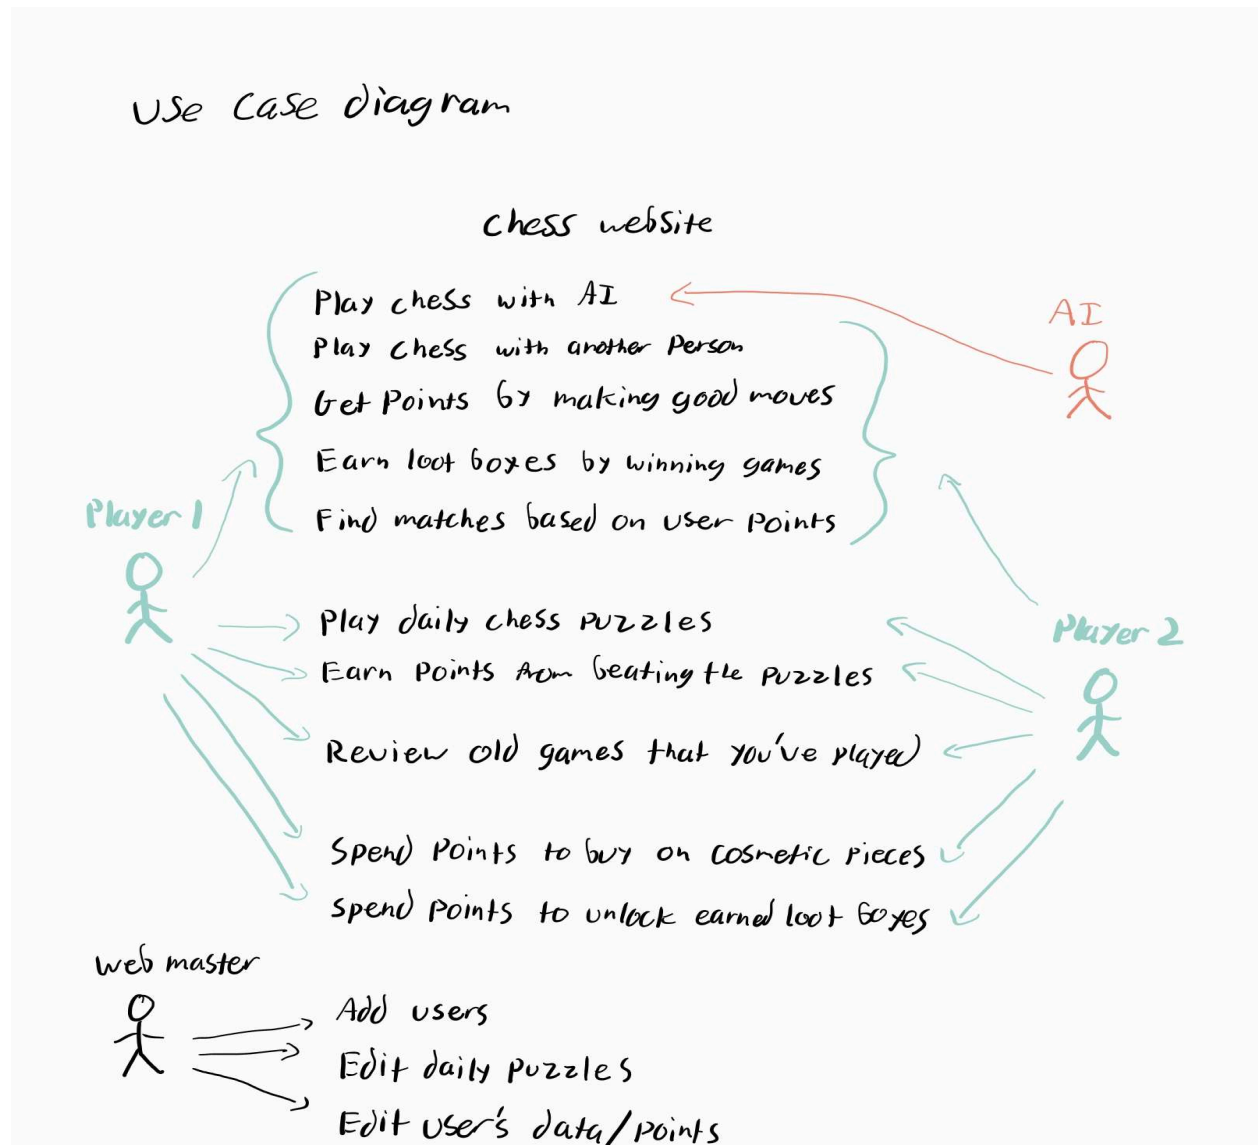 Use case diagram
Chess website
Play chess with AI
AI
Play chess with another Person
Get Points by making good moves
Earn loot boxes by winning games
Player 1
Find matches based on user points
Play daily chess puzzles
Player 2
Earn Points from beating the puzzles
Review old games that you've played
Spend Points to buy on cosmetic pieces
Spend points to unlock earned loot boxes
Web master
Add users
Edit daily puzzles
Edit user's data/points